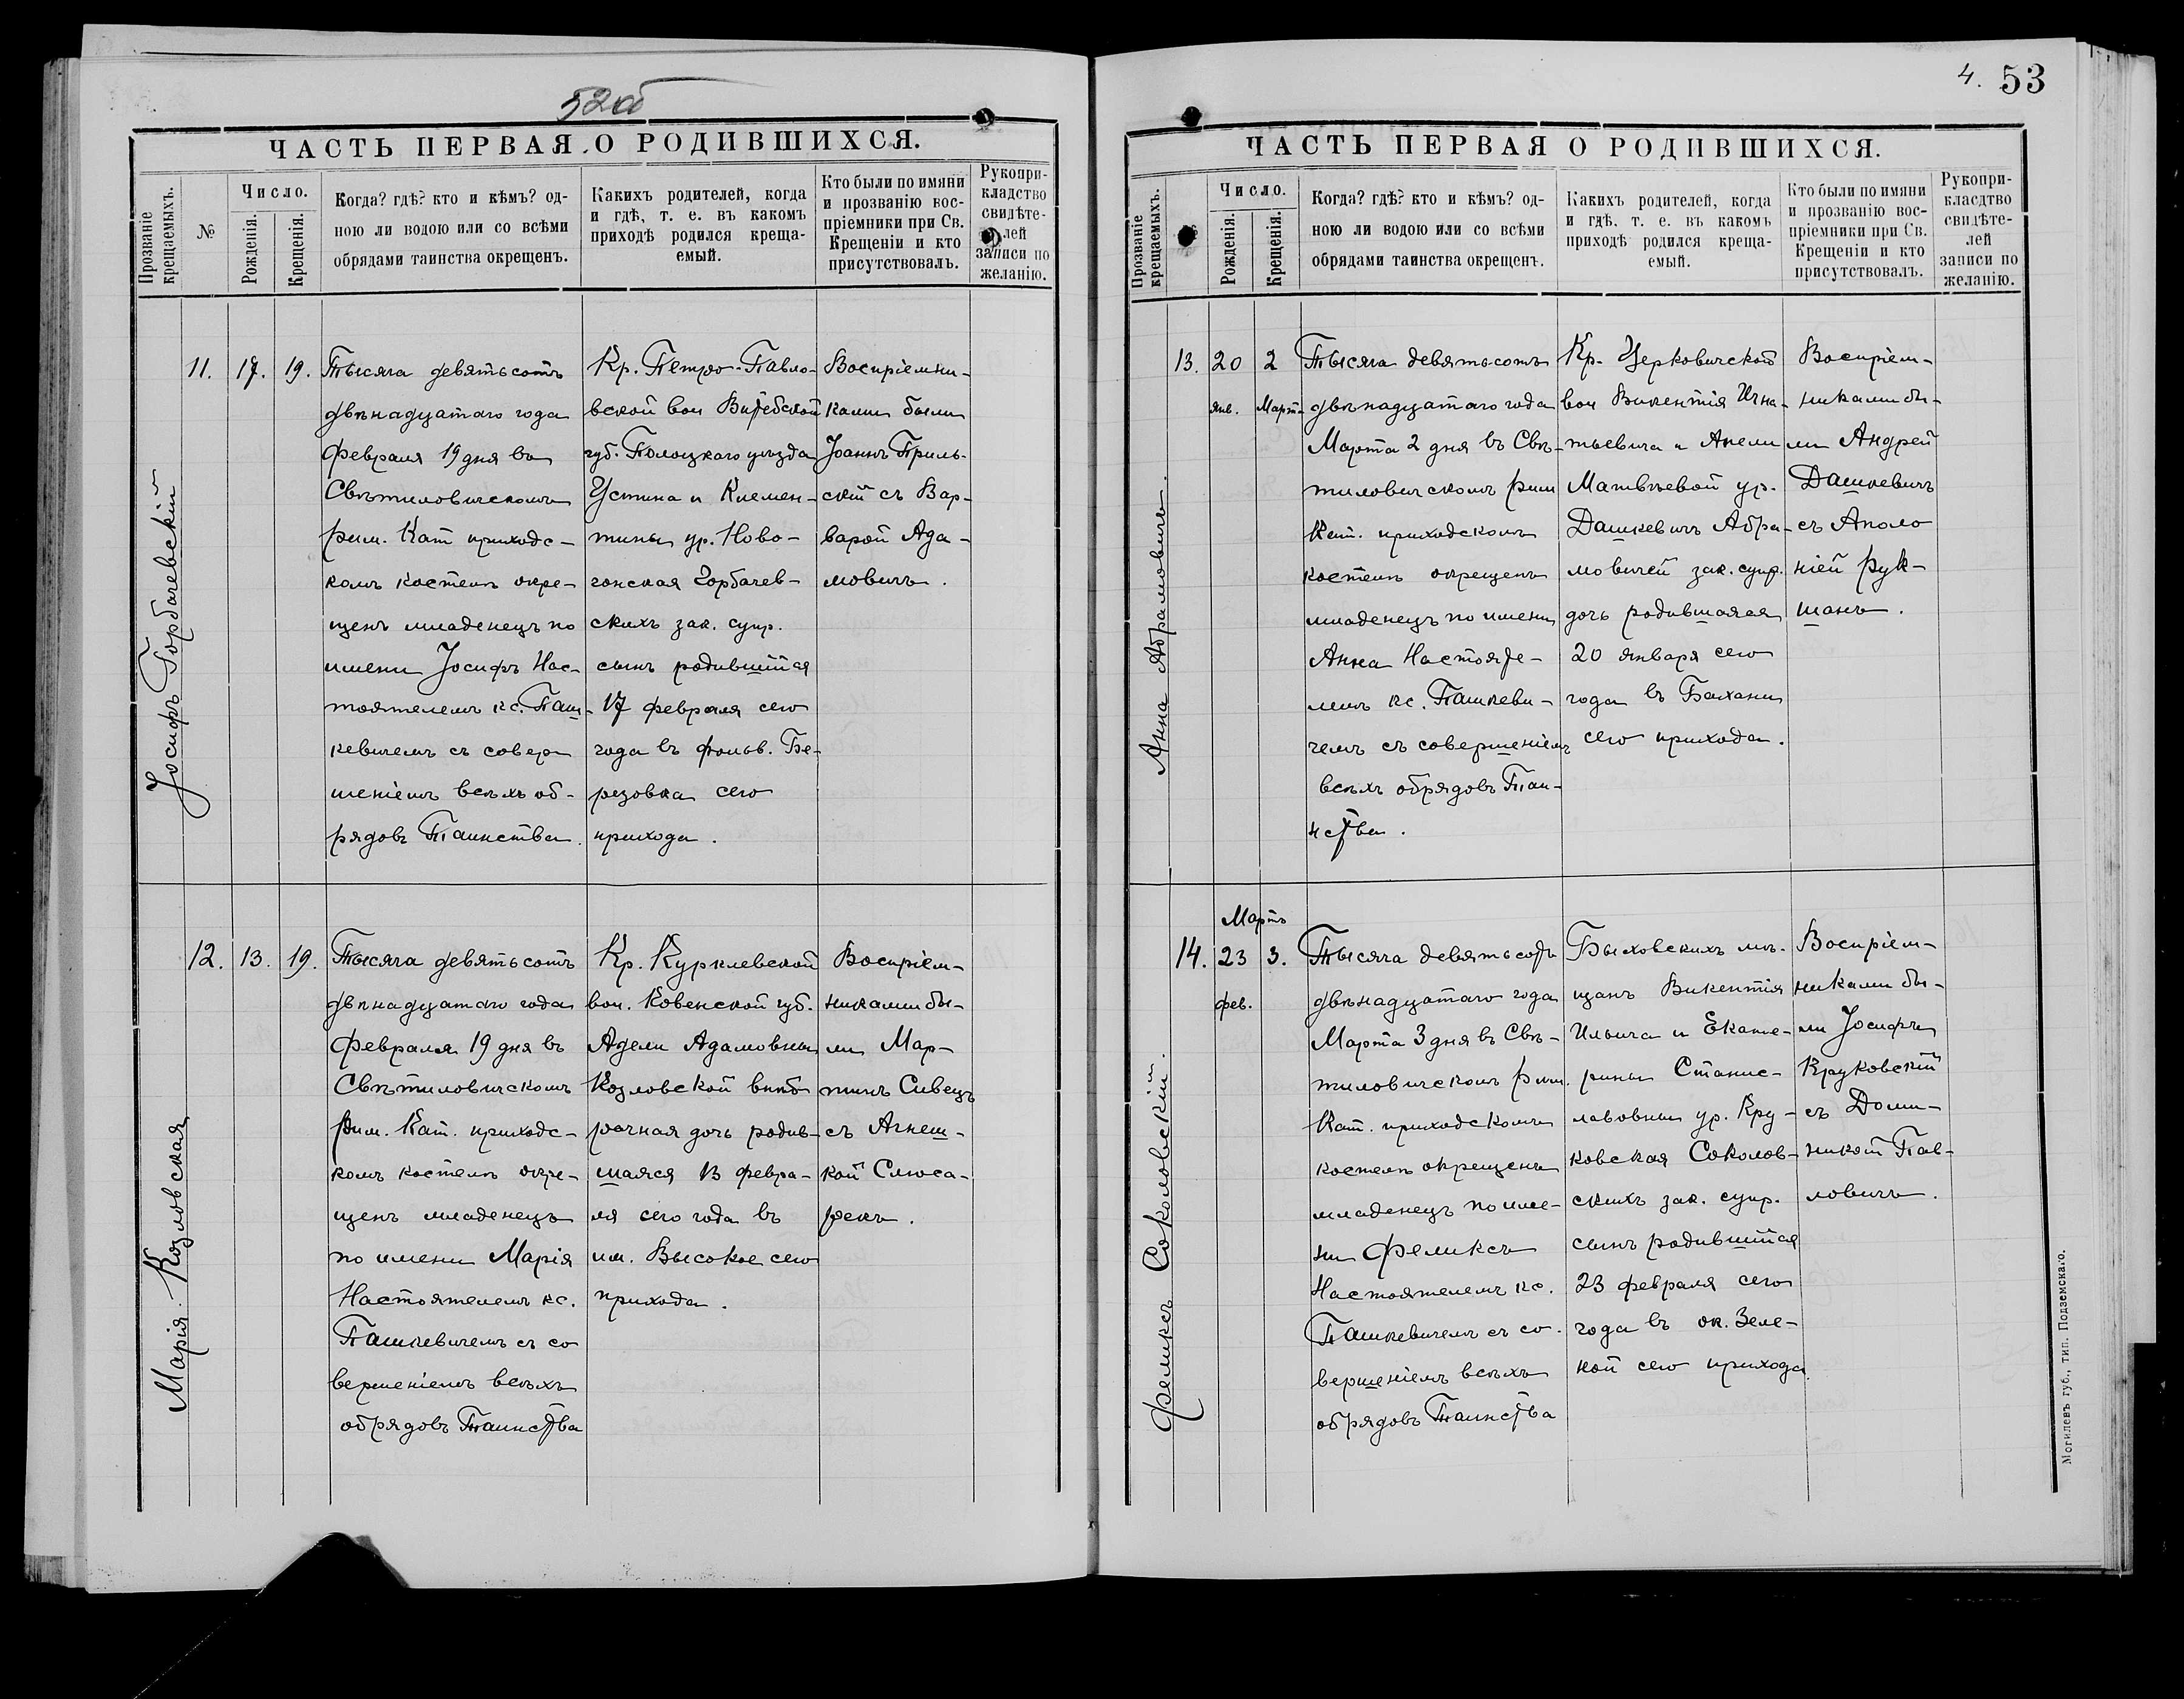 52об
ЧАСТЬ ПЕРВАЯ О РОДИВШИХСЯ.
Прозваніе
крещаемыхъ.
№
Число.
Рожденія.
Крещенія.
Когда? гдѣ? кто и кѣмъ? од-
ною ли водою или со всѣми
обрядами таинства окрещенъ.
Какихъ родителей, когда
и гдѣ, т. е. въ какомъ
приходѣ родился креща-
емый.
Кто были по имяни
и прозванію вос-
пріемники при Св.
Крещеніи и кто
присутствовалъ.
Рукопри-
кладство
свидѣте-
лей
записи по
желанію.
Іосифъ Горбачевскій
11.
17.
19.
Тысяча девятьсотъ
двѣнадцатаго года
Февраля 19 дня въ
Свѣтиловичскомъ
Рим. Кат приходс-
комъ костелѣ окре-
щенъ младенецъ по
имени Іосифъ Нас-
тоятелемъ кс. Паш-
кевичемъ съ совер
шеніемъ всѣхъ об-
рядовъ Таинства.
Кр. Петро-Павло-
вской вол Витебской
губ. Полоцкаго уѣзда
Устина и Клемен-
тины ур. Ново-
гонская Горбачев-
скихъ зак. супр.
сынъ родившійся
17 февраля сего
года въ фольв. Бе-
резовка сего
прихода.
Воспріемни-
ками были
Іоаннъ Приль-
скій съ Вар-
варой Ада-
мовичъ.
Марія Козловская
12.
13.
19.
Тысяча девятьсотъ
двѣнадцатаго года
Февраля 19 дня въ
Свѣтиловичскомъ
Рим. Кат. приходс-
комъ костелѣ окре-
щенъ младенецъ
по имени Марія
Настоятелемъ кс.
Пашкевичемъ съ со
вершеніемъ всѣхъ
обрядовъ Таинства
Кр. Курклевской
вол. Ковенской губ.
Адели Адамовны
Козловской внѣб
рачная дочь родив-
шаяся 13 февра-
ля сего года въ
им. Высокое сего
прихода.
Воспріем-
никами бы-
ли Мар-
тинъ Сивецъ
съ Агнеш-
кой Слюса-
рекъ.
4. 53
ЧАСТЬ ПЕРВАЯ О РОДИВШИХСЯ.
Прозваніе
крещаемыхъ.
Число.
Рожденія.
Крещенія.
Когда? гдѣ? кто и кѣмъ? од-
ною ли водою или со всѣми
обрядами таинства окрещенъ.
Какихъ родителей, когда
и гдѣ, т. е. въ какомъ
приходѣ родился креща-
емый.
Кто были по имяни
и прозванію вос-
пріемники при Св.
Крещеніи и кто
присутствовалъ.
Рукопри-
класдтво
свидѣте-
лей
записи по
желанію.
Анна Абрамовичъ.
13.
20
янв.
2
Март
Тысяча девятьсотъ
двѣнадцатаго года
Марта 2 дня въ Свѣ-
тиловичскомъ рим
Кат. приходскомъ
костелѣ окрещенъ
младенецъ по имени
Анна Настояте-
лемъ кс. Пашкеви-
чемъ съ совершеніемъ
всѣхъ обрядовъ Таи-
нства.
Кр. Церковичской
вол Викентія Игна-
тьевича и Анели
Матвѣевой ур.
Дашкевичъ Абра-
мовичей зак. супр.
дочь родившаяся
20 января сего
года въ Бахани
сего прихода.
Воспріем-
никами бы-
ли Андрей
Дашкевичъ
съ Аполо
ніей Рук-
шанъ.
Феликсъ Соколовскій.
Мартъ
14.
23
фев.
3.
Тысяча девятьсотъ
двѣнадцатаго года
Марта 3 дня въ Свѣ-
тиловичскомъ рим.
Кат. приходскомъ
костелѣ окрещенъ
младенецъ по име-
ни Феликсъ
Настоятелемъ кс.
Пашкевичемъ съ со-
вершеніемъ всѣхъ
обрядовъ Таинства
Быховскихъ мѣ-
щанъ Викентія
Ильича и Екате-
рины Станис-
лавовны ур. Кру-
ковская Соколов-
скихъ зак. супр.
сынъ родившійся
23 февраля сего
года въ ок. Зеле-
ной сего прихода.
Воспріем-
никами бы-
ли Іосифъ
Круковскій
съ Доми-
никой Пав-
ловичъ.
Могилевъ губ., тип. Подземскаго.